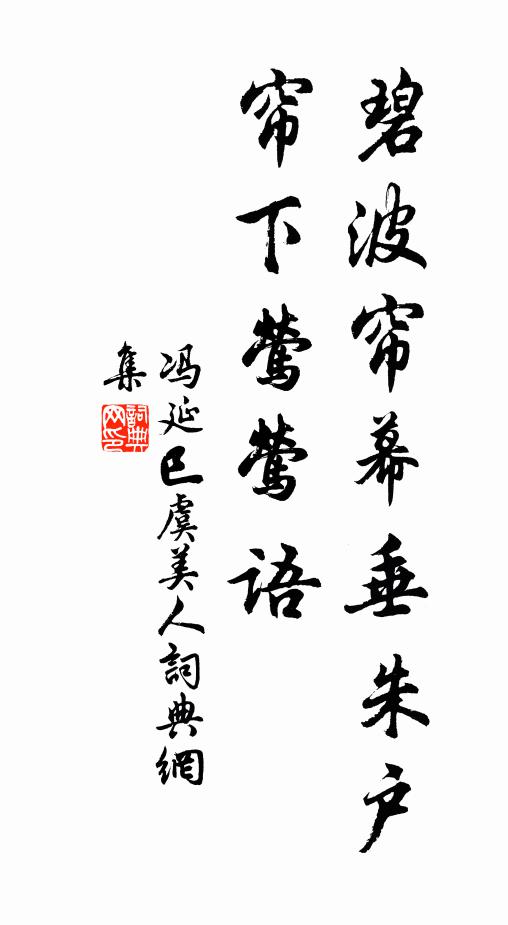 碧波帘幕垂朱户
帘下莺莺语
冯延巳虞美人詞典網
集
詞典网印